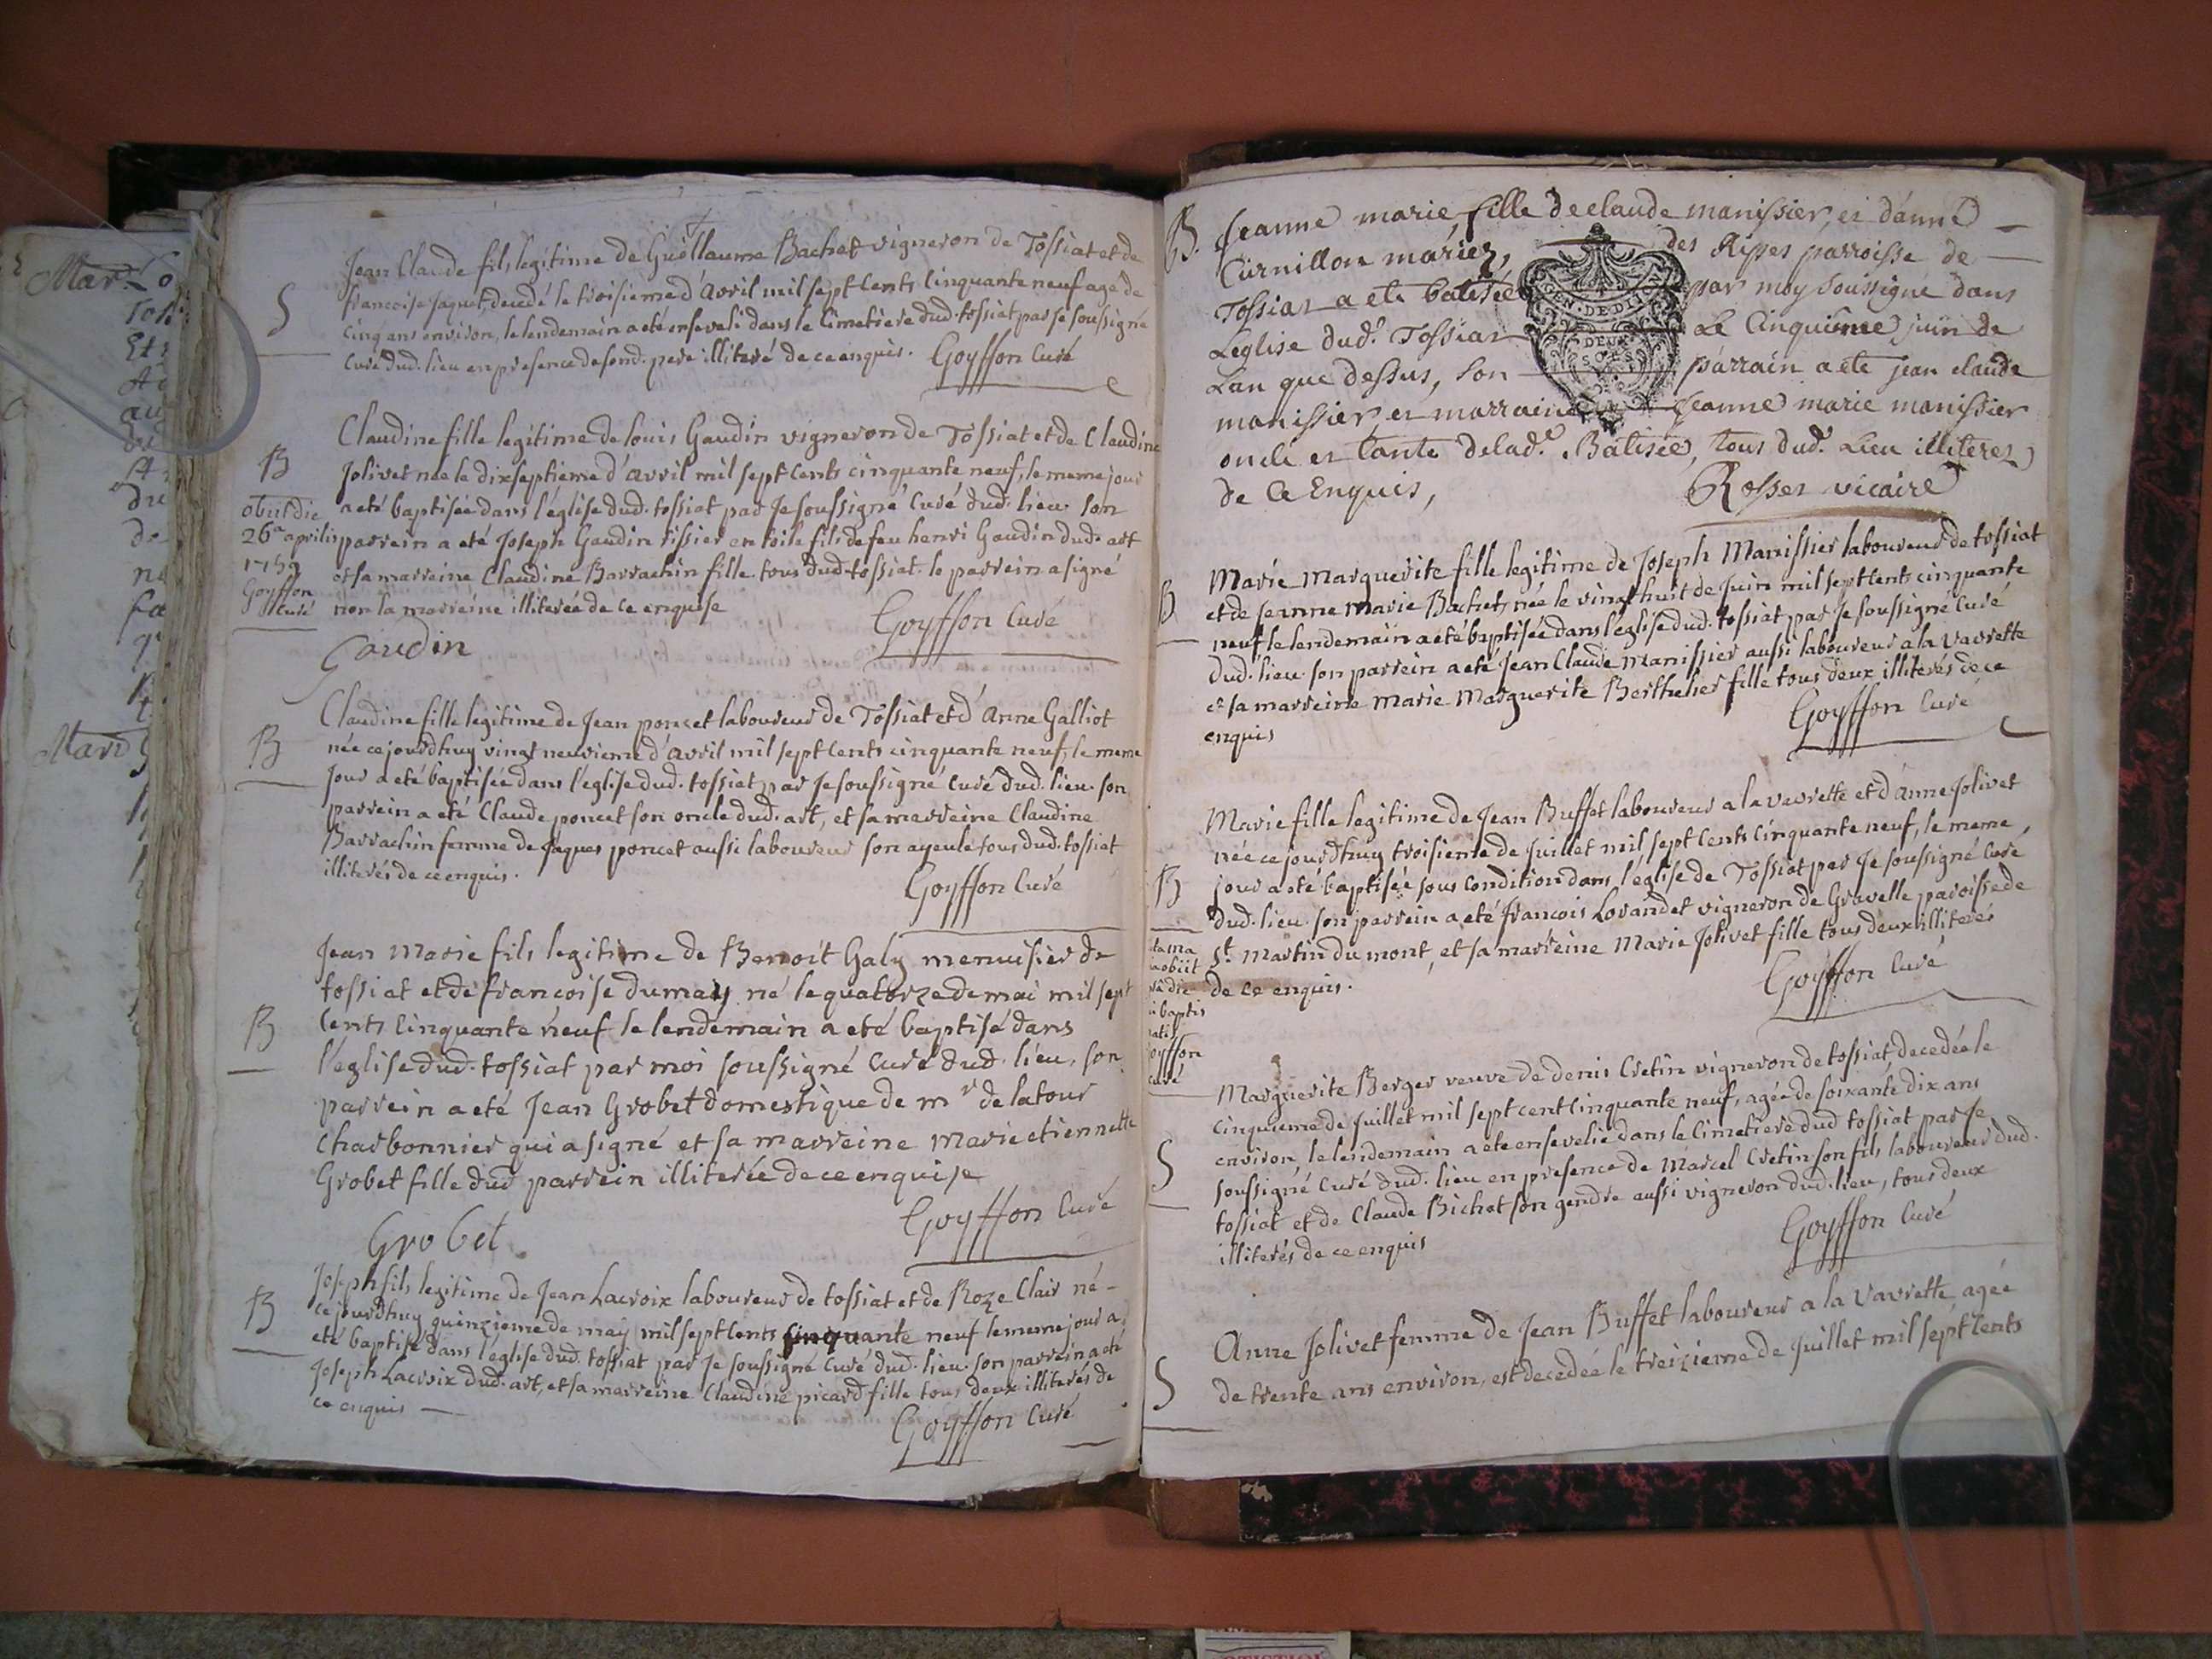 Jean Claude fils legitime de Guillaume Bachet vigneron de Tossiat et de
francoise jaquet, decedé le troisieme d'avril mil sept cents cinquante neuf agé de
S
cinq ans environ, le lendemain a eté enseveli dans le cimetiere dud. tossiat par je soussigné
curé dud. lieu en presence de sond. pere illiteré de ce enquis. Goyffon curé
Claudine fille legitime de louis Gaudin vigneron de Tossiat et de Claudine
B
jolivet née le dixseptieme d'avril mil sept cents cinquante neuf, le meme jour
a eté baptisée dans l'église dud. tossiat par je soussigné curé dud. lieu son
parrein a eté Joseph Gaudin tissier en toile fils de feu henri Gaudin dud. art
et sa marreine Claudine Barrachin fille tous dud. tossiat. le parrein a signé
non la marreine illiterée de ce enquise
Goyffon curé
Gaudin
obiit die
26a aprilis
1759
Goyffon
curé
Claudine fille legitime de Jean poncet laboureur de Tossiat et d'Anne Galliot
B
née ce jourdhuy vingt neuvieme d'avril mil sept cents cinquante neuf, le meme
jour a eté baptisée dans l'eglise dud. tossiat par je soussigné curé dud. lieu. son
parrein a eté Claude poncet son oncle dud. art, et sa marreine Claudine
Barrachin femme de jaques poncet aussi laboureur son ayeule tous dud. tossiat
illiterés de ce enquis.
Goyffon curé
Jean Marie fils legitime de Benoit Galy menuisier de
tossiat et de francoise dumay né le quatorze de mai mil sept
B
cents cinquante neuf le lendemain a eté baptisé dans
l'eglise dud. tossiat par moi soussigné curé dud. lieu, son
parrein a eté Jean Grobet domestique de mr de latour
charbonnier qui a signé et sa marreine Marie etiennette
Grobet fille dud parrein illiterée de ce enquise
Goyffon curé
Grobet
Joseph fils legitime de Jean Lacroix laboureur de tossiat et de Roze Clair né
B
ce jourdhuy quinzieme de may mil sept cents cinquante neuf le meme jour a
eté baptisé dans l'eglise dud. tossiat par je soussigné curé dud. lieu. son parrein a eté
Joseph Lacroix dud. art, et sa marreine Claudine picard fille tous deux illiterés de
ce enquis
Goyffon curé
B. Jeanne marie fille de claude manissier, et d'anne
Curnillon mariez, des Rippes parroisse de
Tossiat a ete batisée par moy soussigne dans
Leglise dud.t Tossiat Le Cinquième juin de
Lan que dessus, son parrain a ete jean claude
manissier, et marraine Jeanne marie manissier
oncle et tante de lad.e Batisée, tous dud.t Lieu illiterez
de ce Enquis,
Rosset vicaire
GEN. DE DIJON
DEUX
SOLS
Marie Marguerite fille legitime de Joseph Manissier laboureur de tossiat
et de jeanne Marie Bachet, née le vingt huit de juin mil sept cents cinquante
B
neuf, le lendemain a eté baptisée dans l'eglise dud. tossiat par je soussigné curé
dud. lieu. son parrein a eté jean Claude Manissier aussi laboureur a la Vavrette
et sa marreine Marie Marguerite Berthelier fille tous deux illiterés de ce
enquis
Goyffon curé
Marie fille legitime de Jean Buffet laboureur a la vavrette et d'Anne Jolivet
née ce jourdhuy troisieme de juillet mil sept cents cinquante neuf, le meme
B
jour a eté baptisée sous condition dans l'église de Tossiat par je soussigné curé
dud. lieu. son parrein a eté francois Lorandet vigneron de Gravelle paroisse de
St. Martin du mont, et sa marreine Marie Jolivet fille tous deux illiterés
de ce enquis.
Goyffon curé
obiit
die
baptis
oyffon
curé
Marguerite Berger veuve de denis Cretin vigneron de tossiat decedée le
cinquieme de juillet mil sept cent cinquante neuf, agée de soixante dix ans
environ, le lendemain a ete ensevelie dans le cimetiere dud tossiat par je
S
soussigné curé dud. lieu en presence de Marcel Cretin son fils laboureur dud.
tossiat et de Claude Bichat son gendre aussi vigneron dud. lieu, tous deux
illiterés de ce enquis
Goyffon curé
Anne Jolivet femme de Jean Buffet laboureur a la Vavrette agée
S
de trente ans environ, est decedée le treizieme de juillet mil sept cents